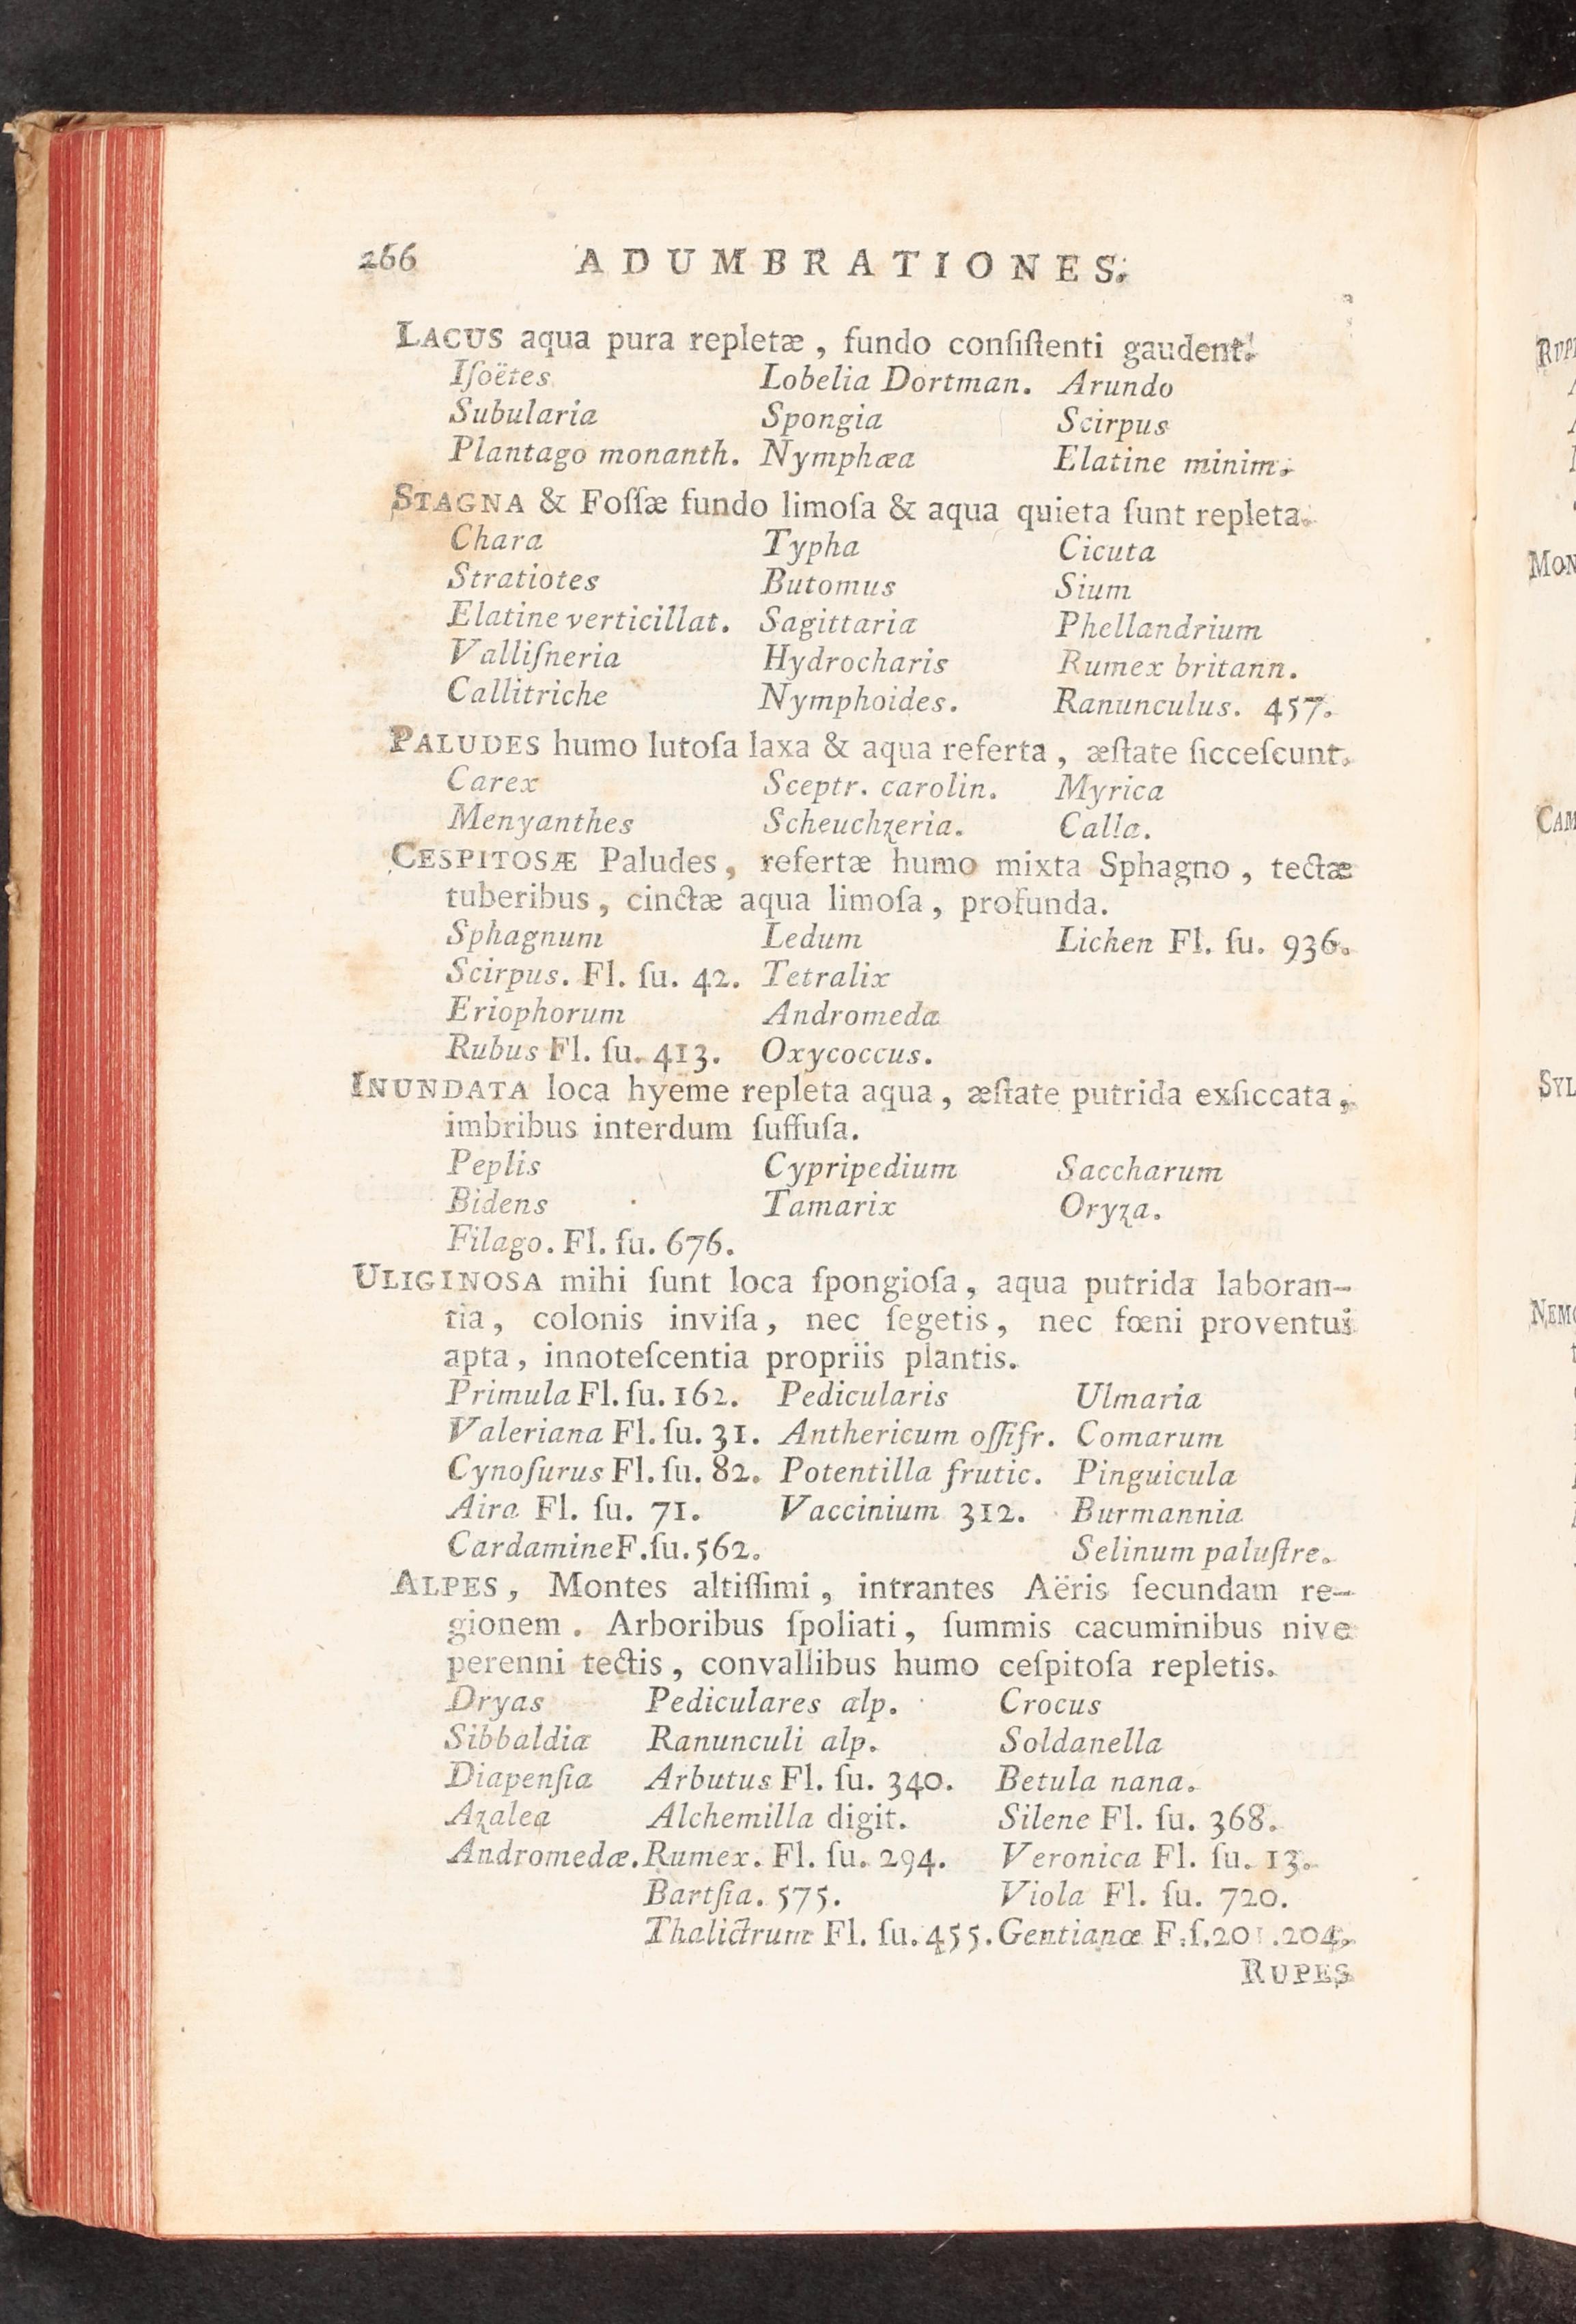 266 ADUMBRATIONES.
LACUS aqua pura repletæ, fundo conſiſtenti gaudent.
Iſoëtes Lobelia Dortman. Arundo
Subularia Spongia Scirpus
Plantago monanth. Nymphæa Elatine minim.
STAGNA & Foſſæ fundo limoſa & aqua quieta ſunt repleta.
Chara Typha Cicuta
Stratiotes Butomus Sium
Elatine verticillat. Sagittaria Phellandrium
Valliſneria Hydrocharis Rumex britann.
Callitriche Nymphoides. Ranunculus. 457.
PALUDES humo lutoſa laxa & aqua referta, æſtate ſicceſcunt.
Carex Sceptr. carolin. Myrica
Menyanthes Scheuchzeria. Calla.
CESPITOSÆ Paludes, refertæ humo mixta Sphagno, tectæ
tuberibus, cinctæ aqua limoſa, profunda.
Sphagnum Ledum Lichen Fl. ſu. 936.
Scirpus. Fl. ſu. 42. Tetralix
Eriophorum Andromeda
Rubus Fl. ſu. 413. Oxycoccus.
INUNDATA loca hyeme repleta aqua, æſtate putrida exſiccata,
imbribus interdum ſuffuſa.
Peplis Cypripedium Saccharum
Bidens Tamarix Oryza.
Filago. Fl. ſu. 676.
ULIGINOSA mihi ſunt loca ſpongioſa, aqua putrida laboran-
tia, colonis inviſa, nec ſegetis, nec fœni proventui
apta, innoteſcentia propriis plantis.
Primula Fl. ſu. 162. Pedicularis Ulmaria
Valeriana Fl. ſu. 31. Anthericum oſſifr. Comarum
Cynoſurus Fl. ſu. 82. Potentilla frutic. Pinguicula
Aira Fl. ſu. 71. Vaccinium 312. Burmannia
Cardamine F. ſu. 562. Selinum paluſtre.
ALPES, Montes altiſſimi, intrantes Aëris ſecundam re-
gionem. Arboribus ſpoliati, ſummis cacuminibus nive
perenni tectis, convallibus humo ceſpitoſa repletis.
Dryas Pediculares alp. Crocus
Sibbaldia Ranunculi alp. Soldanella
Diapenſia Arbutus Fl. ſu. 340. Betula nana.
Azalea Alchemilla digit. Silene Fl. ſu. 368.
Andromedæ. Rumex. Fl. ſu. 294. Veronica Fl. ſu. 13.
Bartſia. 575. Viola Fl. ſu. 720.
Thalictrum Fl. ſu. 455. Gentianæ F. ſ. 201. 204.
RUPES